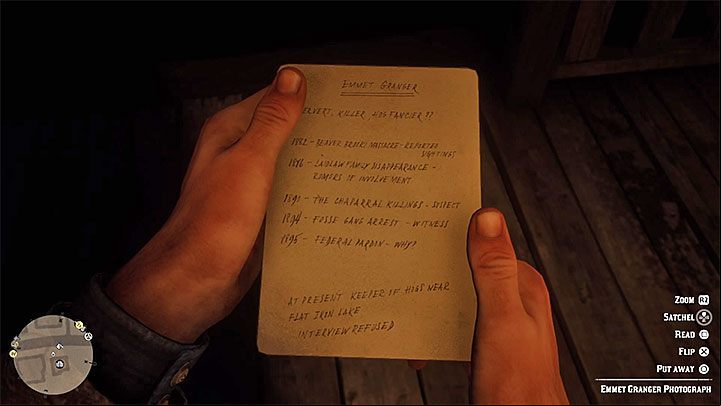 EMMET GRANGER
ERVERT, KILLER, HOG FANCIER ??
1882 - BEAVER MASSACRE - REPORTED
SIGHTINGS
LAIDLAW FAMILY DISAPPEARANCE -
RUMORS OF INVOLVEMENT
THE CHAPARRAL KILLINGS - SUSPECT
1894 - FOSSE GANG ARREST - WITNESS
1895 - FEDERAL PARDON - WHY?
AT PRESENT KEEPER OF HOGS NEAR
FLAT IRON LAKE
INTERVIEW REFUSED
ZOOM R2
SATCHEL
READ
FLIP
PUT AWAY
EMMET GRANGER PHOTOGRAPH